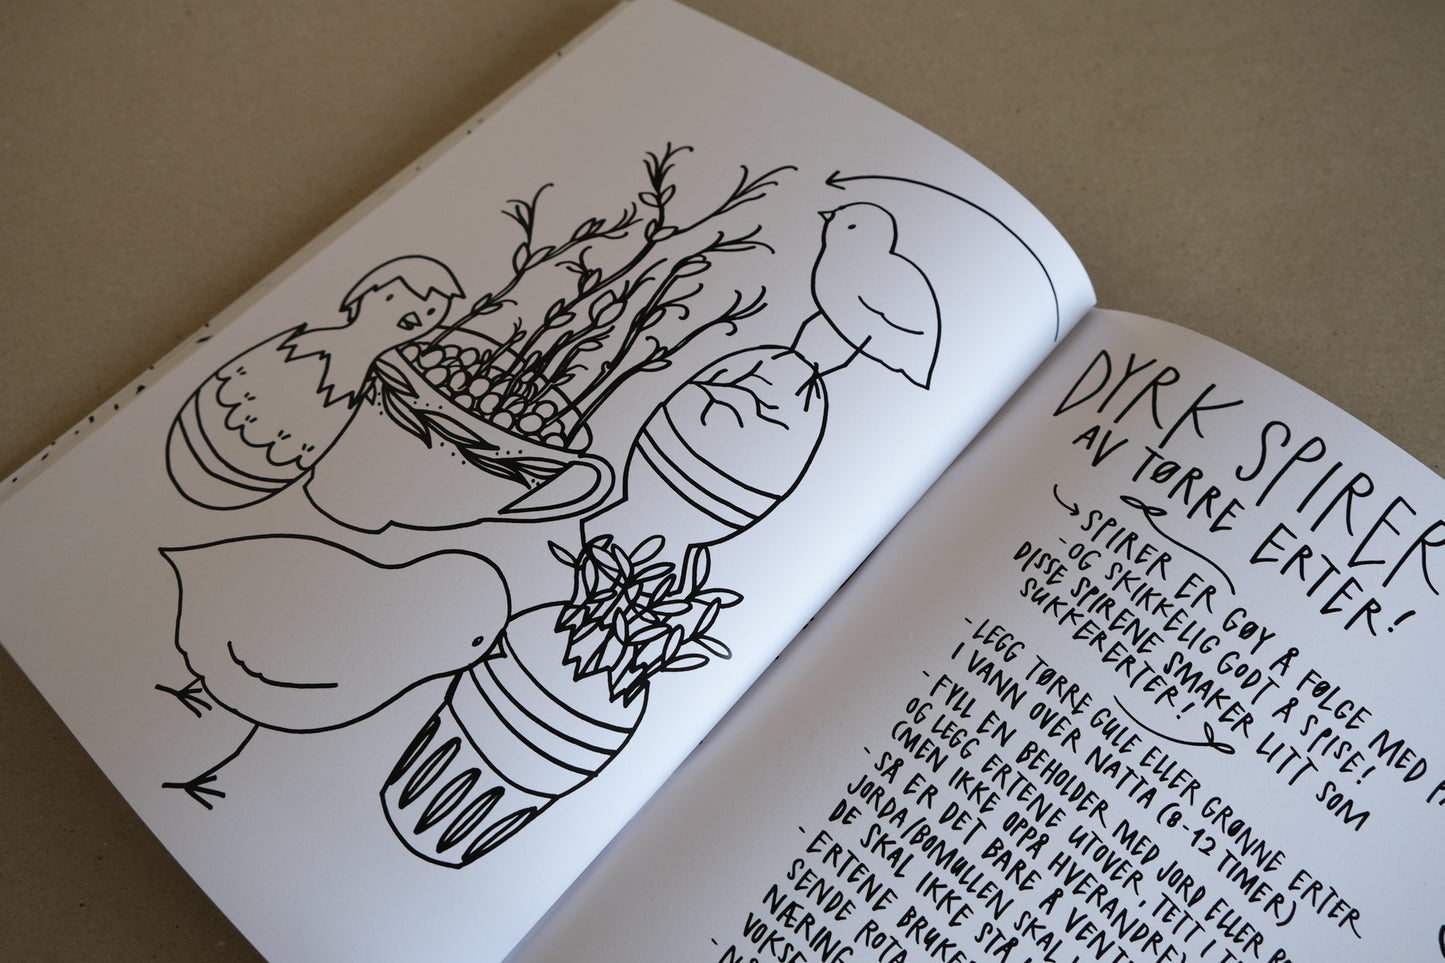 DYRK SPIRER
AV TØRRE ERTER!
SPIRER ER GØY Å FØLGE MED
-OG SKIKKELIG GODT Å SPISE!
DISSE SPIRENE SMAKER LITT SOM
SUKKERERTER!
-LEGG TØRRE GULE ELLER GRØNNE ERTER
I VANN OVER NATTA (8-12 TIMER)
-FYLL EN BEHOLDER MED JORD ELLER
OG LEGG ERTENE UTOVER, TETT I
(MEN IKKE OPPÅ HVERANDRE)
-SÅ ER DET BARE Å VENTE
JORDA/BOMULLEN SKAL
DE SKAL IKKE STÅ
-ERTENE
SENDE
NÆRING